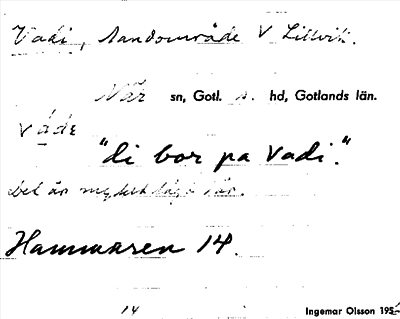 Vadi, Sandområde V Lillvik.
När sn, Gotl. s. hd, Gotlands län.
våde
"di bor pa Vadi."
Det är mycket lågt där.
Hammaren 14.
14 Ingemar Olsson 195